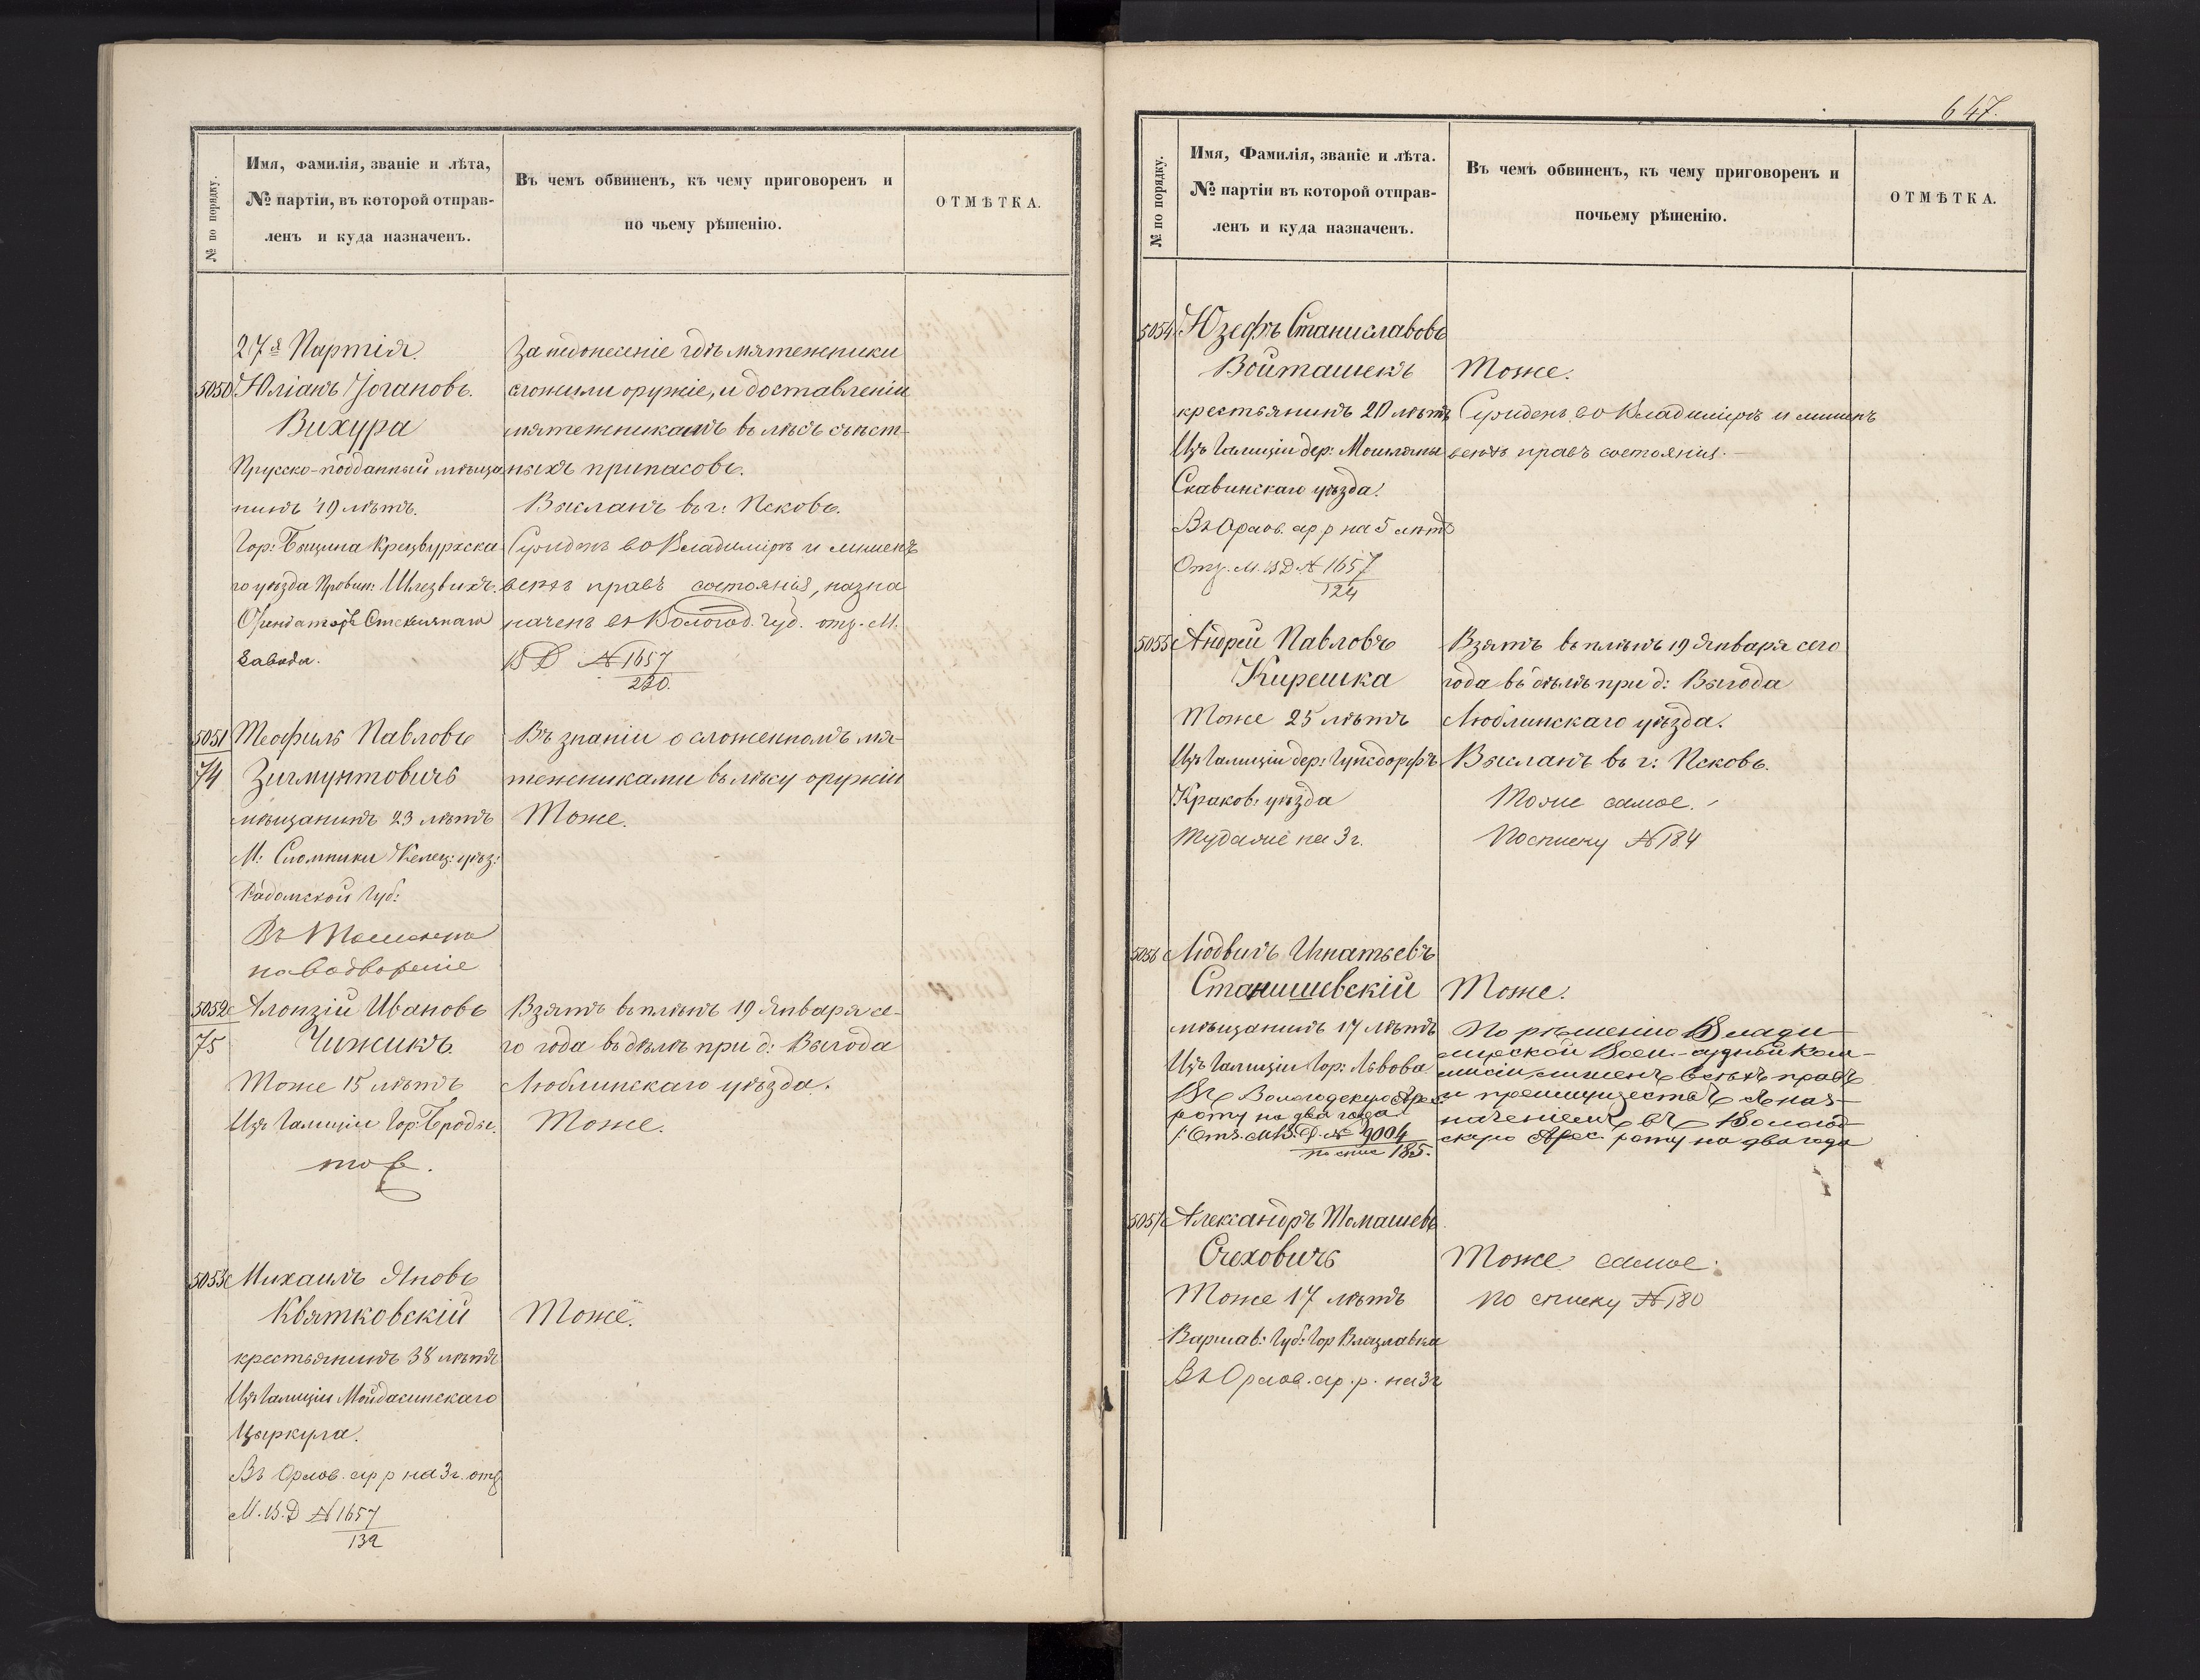 № по порядку.
Имя, фамилія, званіе и лѣта,
№ партіи, въ которой отправ-
ленъ и куда назначенъ.
Въ чемъ обвиненъ, къ чему приговоренъ и
по чьему рѣшенію.
ОТМѢТКА.
27я Партія.
5050 Юліанъ Іогановъ.
Вихура
Прусско-подданный мѣща
нинъ 49 лѣтъ.
Гор: Крецбургска
го уѣзда Провин: Шлезвихъ.
Орендаторъ Стекляннаго
Завода.
За недонесеніе гдѣ мятежники
сложили оружіе, и доставленіи
мятежникамъ въ лѣсъ съѣст-
ныхъ припасовъ.
Высланъ въ г: Псковъ.
Сужденъ во Владимірѣ и лишенъ
всѣхъ правъ состоянія, назна
ченъ въ Вологод. губ. отз. М.
В Д № 1657
220.
5051 Теофилъ Павловъ
74 Зигмунтовичъ
мѣщанинъ 23 лѣтъ
М: Сломники Келец: уѣз:
Радомской Губ:
Въ
на водвореніе
Въ знаніи о сложенномъ мя-
тежниками въ лѣсу оружіи
Тоже.
5052 Алоизій Ивановъ
75 Чижикъ.
Тоже 15 лѣтъ
Изъ Галиціи Гор: Броды.
Взятъ въ плѣнъ 19 Января се-
го года въ дѣлѣ при д: Выгода
Люблинскаго уѣзда.
Тоже.
5053 Михаилъ Яновъ
Квятковскій
крестьянинъ 38 лѣтъ
Изъ Галиціи
Цыркула.
Въ Орлов. ар р на 3 г. отз
М. В. Д № 1657
132
Тоже.
647.
№ по порядку.
Имя, Фамилія, званіе и лѣта.
№ партіи въ которой отправ-
ленъ и куда назначенъ.
Въ чемъ обвиненъ, къ чему приговоренъ и
почьему рѣшенію.
ОТМѢТКА.
5054 Юзефъ Станиславовъ
Войташекъ
крестьянинъ 20 лѣтъ
Изъ Галиціи дер:
Скавинскаго уѣзда.
Въ Орлов. ар р на 5 лѣтъ
Отз. М. В Д № 1657
124
Тоже.
Сужденъ во Владимірѣ и лишенъ
всѣхъ правъ состоянія.
5055 Андрей Павловъ
Кирешка
Тоже 25 лѣтъ
Изъ Галиціи дер:
Краков: уѣзда
Туда же на 3 г.
Взятъ въ плѣнъ 19 Января сего
года въ дѣлѣ при д: Выгода
Люблинскаго уѣзда.
Высланъ въ г: Псковъ.
Тоже самое.
По списку № 184
5056 Людвигъ Игнатьевъ
Станишевскій
мѣщанинъ 17 лѣтъ
Изъ Галиціи Гор: Львова
Въ Вологодскую Арес.
роту на два года
Отз. М.В.Д. № 9004
по спис 185.
Тоже.
По рѣшенію Влади-
мірской Воен.-судной Ком-
мисіи, лишенъ всѣхъ правъ
и преимуществъ съ наз-
наченіемъ въ Вологод-
скую Арес. роту на два года
5057 Александръ Томашевъ
Счеховичъ
Тоже 17 лѣтъ
Варшав: Губ: Гор Влацлавка
Въ Орлов. ар. р. на 3 г
Тоже самое.
По списку № 180